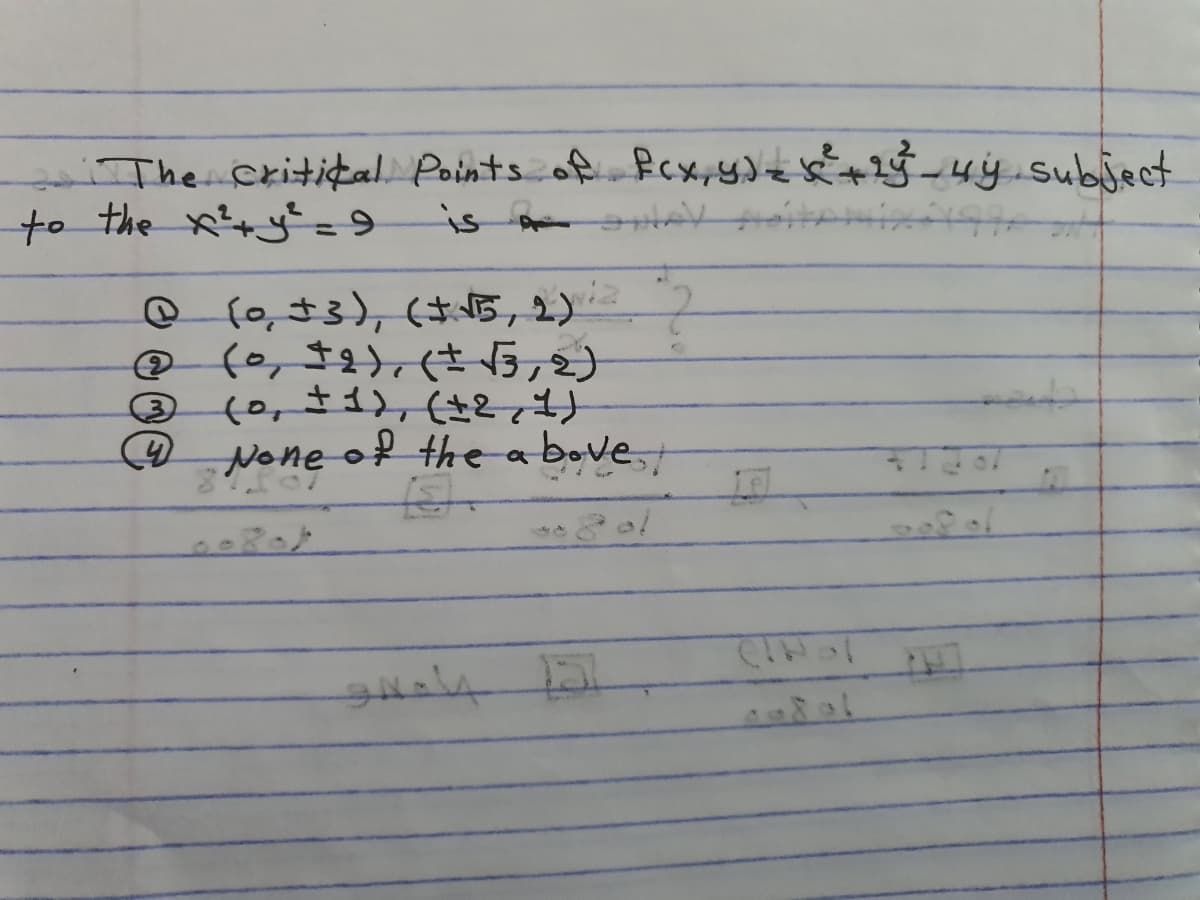 The critical Points of f(x,y) = x² + 2y² - 4y subject
to the x² + y² = 9 is
① (0, ±3), (±√5, 2)
② (0, ±2), (±√3, 2)
③ (0, ±1), (±2, 1)
④ None of the above.